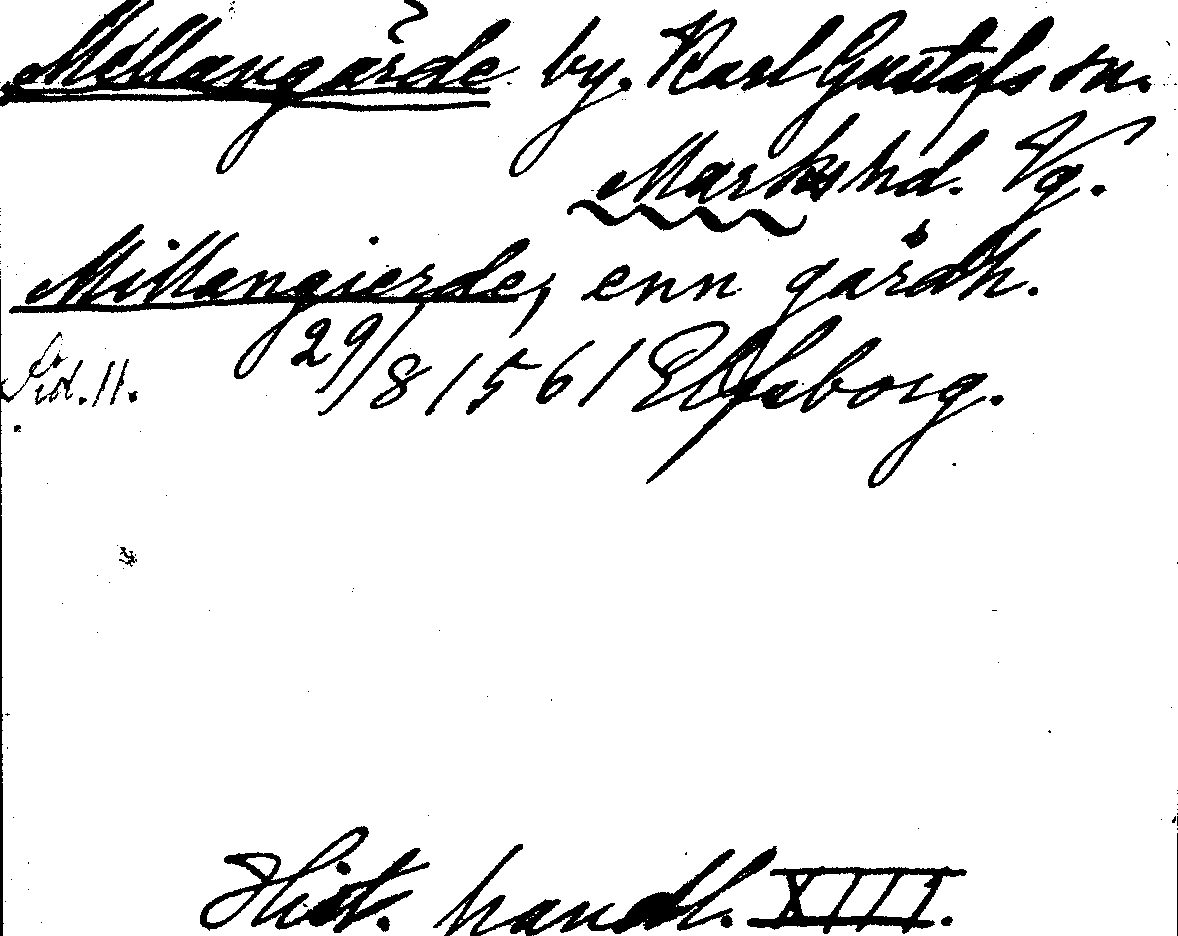 Millangärde by. Karl Gustafs sn.
Marks hd. Vg.
Millangierde, enn gårdh.
Sid. 11. 29/8 1561 Elfsborg.
Hist. handl. XIII.